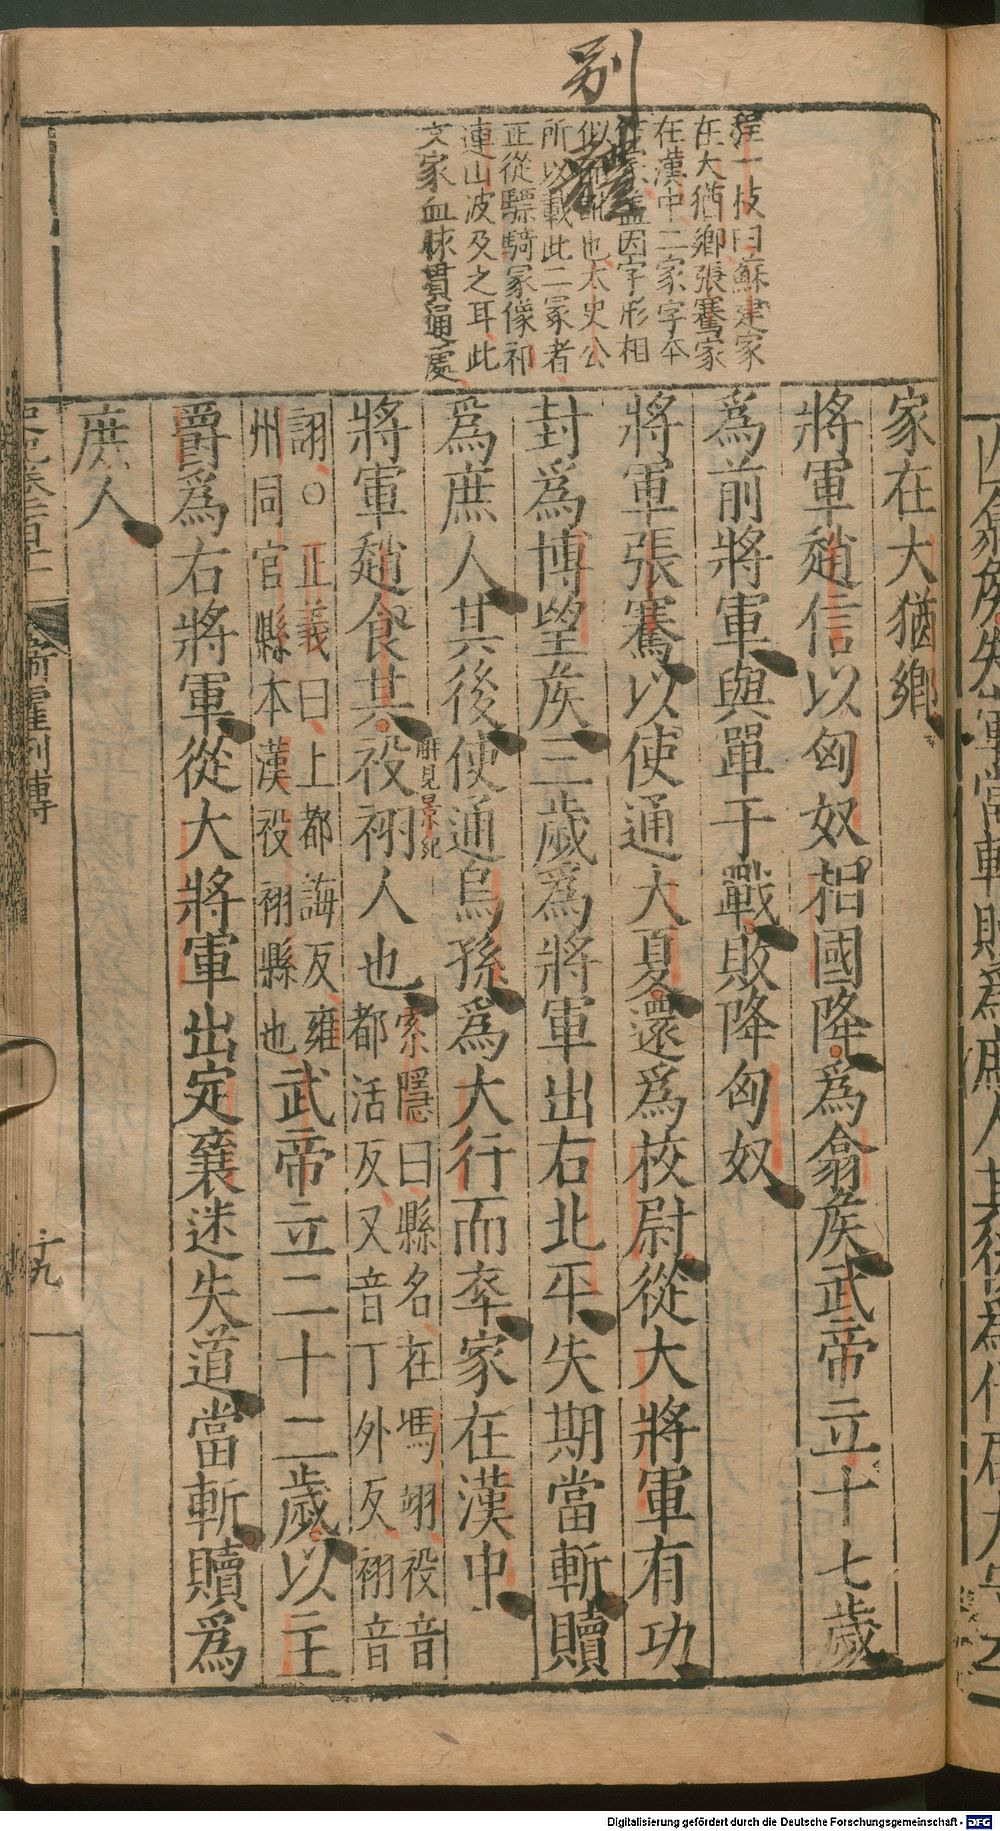 別
程一枝曰蘇建冢
在大猶鄉張騫冢
在漢中二冢字本
因字形相
似也太史公
所以載此二冢者
正從驃騎冢像祁
連山波及之耳此
文家血脉貫通處
冢在大猶鄉
將軍趙信以匈奴相國降為翕侯武帝立十七歲
為前將軍與單于戰敗降匈奴
將軍張騫以使通大夏還為校尉從大將軍有功
封為博望侯三歲為將軍出右北平失期當斬贖
為庶人其後使通烏孫為大行而卒冢在漢中
解見景紀
將軍趙食其祋祤人也索隱曰縣名在馮翊祋音
都活反又音丁外反祤音
詡○正義曰上都誨反雍
州同官縣本漢祋祤縣也武帝立二十二歲以主
爵為右將軍從大將軍出定襄迷失道當斬贖為
庶人
史記卷一百十一 衛霍列傳
十九
Digitalisierung gefördert durch die Deutsche Forschungsgemeinschaft - DFG